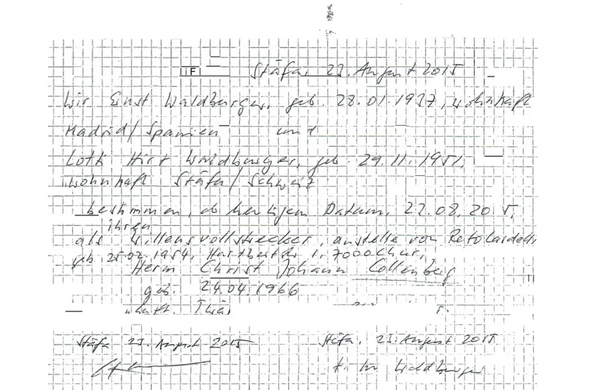 Stäfa, 23. August 2015
Wir Ernst Waldburger, geb. 28.01.1937, wohnhaft
Madrid/Spanien und
Hirt Waldburger, geb. 29.11.1951
wohnhaft Stäfa/Schweiz
bestimmen, ab heutigem Datum,
ihren
als Willensvollstrecker, anstelle von Reto
geb. 1954, 1, 7000 Chur,
Herrn Christ Johann Collenberg
geb. 24.04.1966
Stäfa 23. August 2015 Stäfa, 23. August 2015
Waldburger